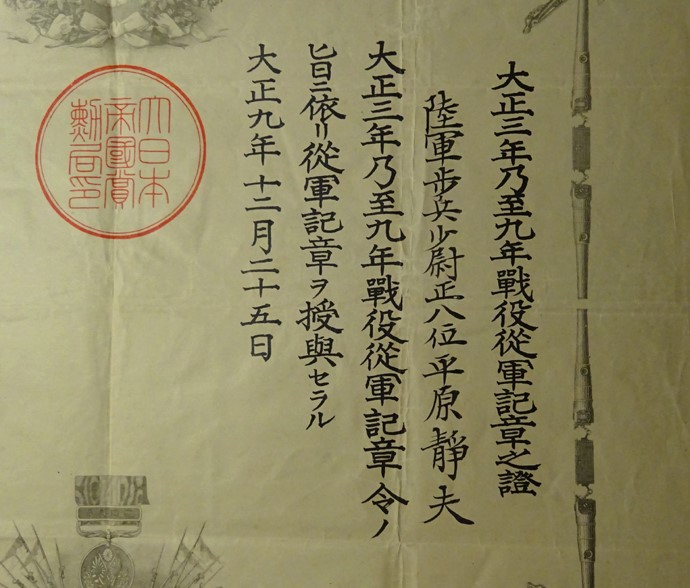 大正三年乃至九年戰役從軍記章之證
陸軍歩兵少尉正八位平原靜夫
大正三年乃至九年戰役從軍記章令ノ
旨ニ依リ從軍記章ヲ授與セラル
大正九年十二月二十五日
大日本
帝國賞
勲局印